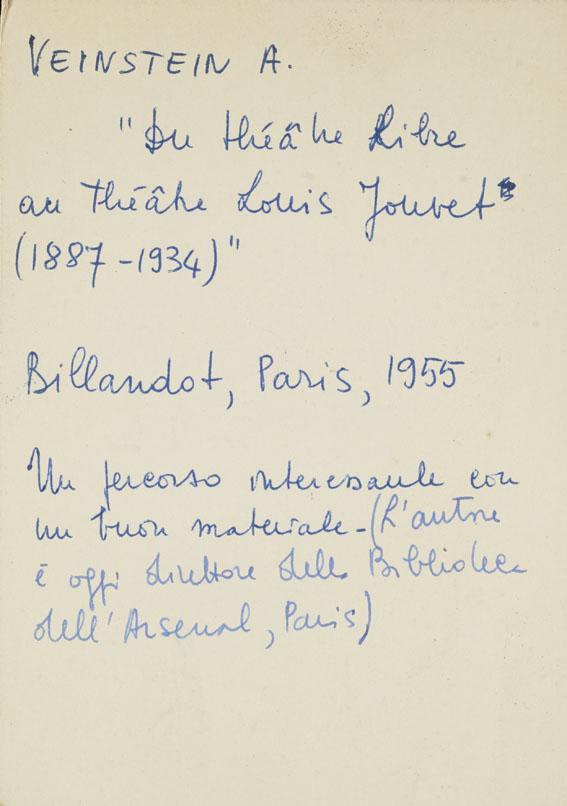 VEINSTEIN A.
"Du théâtre Libre
au théâtre Louis Jouvet
(1887-1934)"
Billaudot, Paris, 1955
Un percorso interessante con
un buon materiale - (L'autore
è oggi direttore della Biblioteca
dell'Arsenal, Paris)